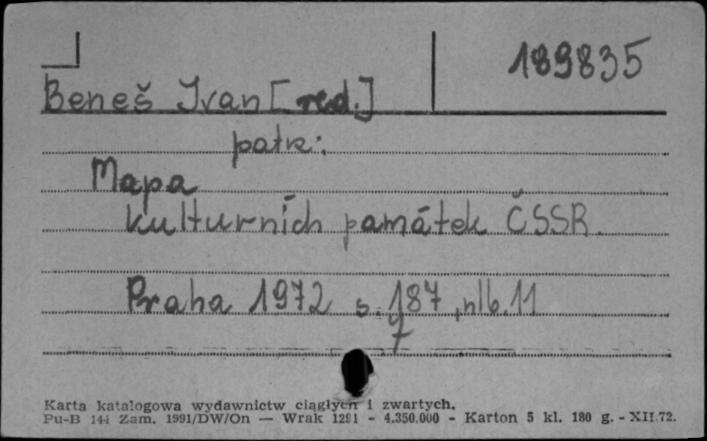 189835
Beneš Ivan [red.]
patrz:
Mapa
kulturních památek ČSSR.
Praha 1972 s. 187, nlb. 11
Karta katalogowa wydawnictw ciągłych i zwartych.
Pu-B 144 Zam. 1991/DW/On — Wrak 1291 - 4.350.000 - Karton 5 kl. 180 g. - XII.72.